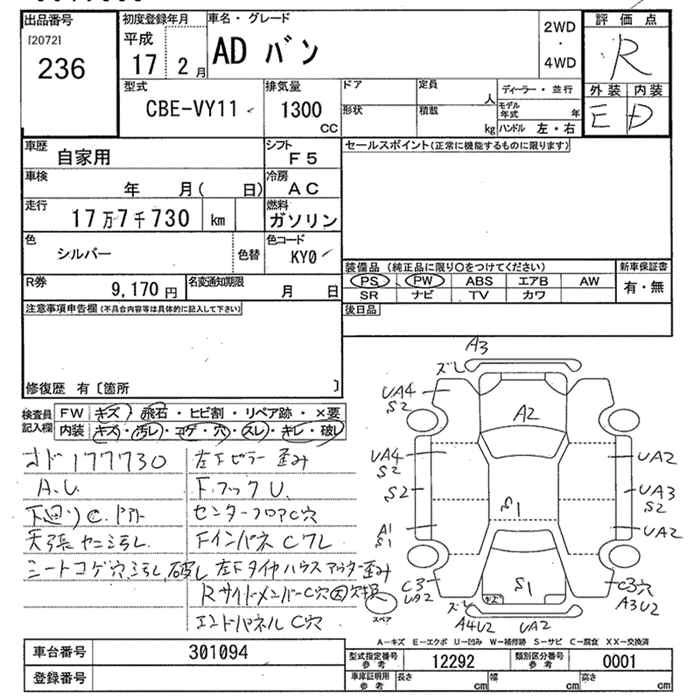 出品番号
[2072]
236
初度登録年月
平成
17 2 月
車名・グレード
AD バン
2WD
・
4WD
評価点
R
外装 内装
E D
型式
CBE-VY11
排気量
1300
CC
ドア
形状
定員
人
積載
kg
ディーラー・並行
モデル年式 年
ハンドル 左・右
車歴
自家用
シフト
F5
車検
年 月( 日)
冷房
AC
走行
17万7千730 km
燃料
ガソリン
色
シルバー
色替
色コード
KY0
R券
9,170 円
名変通知期限
月 日
セールスポイント(正常に機能するものに限ります)
装備品 (純正品に限り○をつけてください)
PS PW ABS エアB AW
SR ナビ TV カワ
新車保証書
有・無
後日品
注意事項申告欄(不具合内容等は具体的に記入して下さい)
修復歴 有〔箇所 〕
検査員記入欄
FW キズ・飛石・ヒビ割・リペア跡・×要
内装 キズ・汚れ・コゲ・穴・スレ・キレ・破レ
オド177730
A.U.
下廻りC.
天張ヤニ汚レ
シートコゲ穴、汚レ、破レ
左Fピラー歪み
F.フックU.
センターフロアC穴
FインパネCワレ
左Fタイヤハウスアウター歪み
RサイドメンバーC穴
エンドパネルC穴
A3
ズレ
UA4
S2
A2
UA4
S2
UA2
S2
UA3
S2
S1
A1
S1
UA2
C3
UA2
S1
C3穴
A3U2
ズレ
A4U2
UA2
スペア
A-キズ E-エクボ U-凹み W-補修跡 S-サビ C-腐食 XX-交換済
車台番号
301094
登録番号
型式指定番号
参考
12292
類別区分番号
参考
0001
車庫証明用
参考
長さ cm
幅 cm
高さ cm